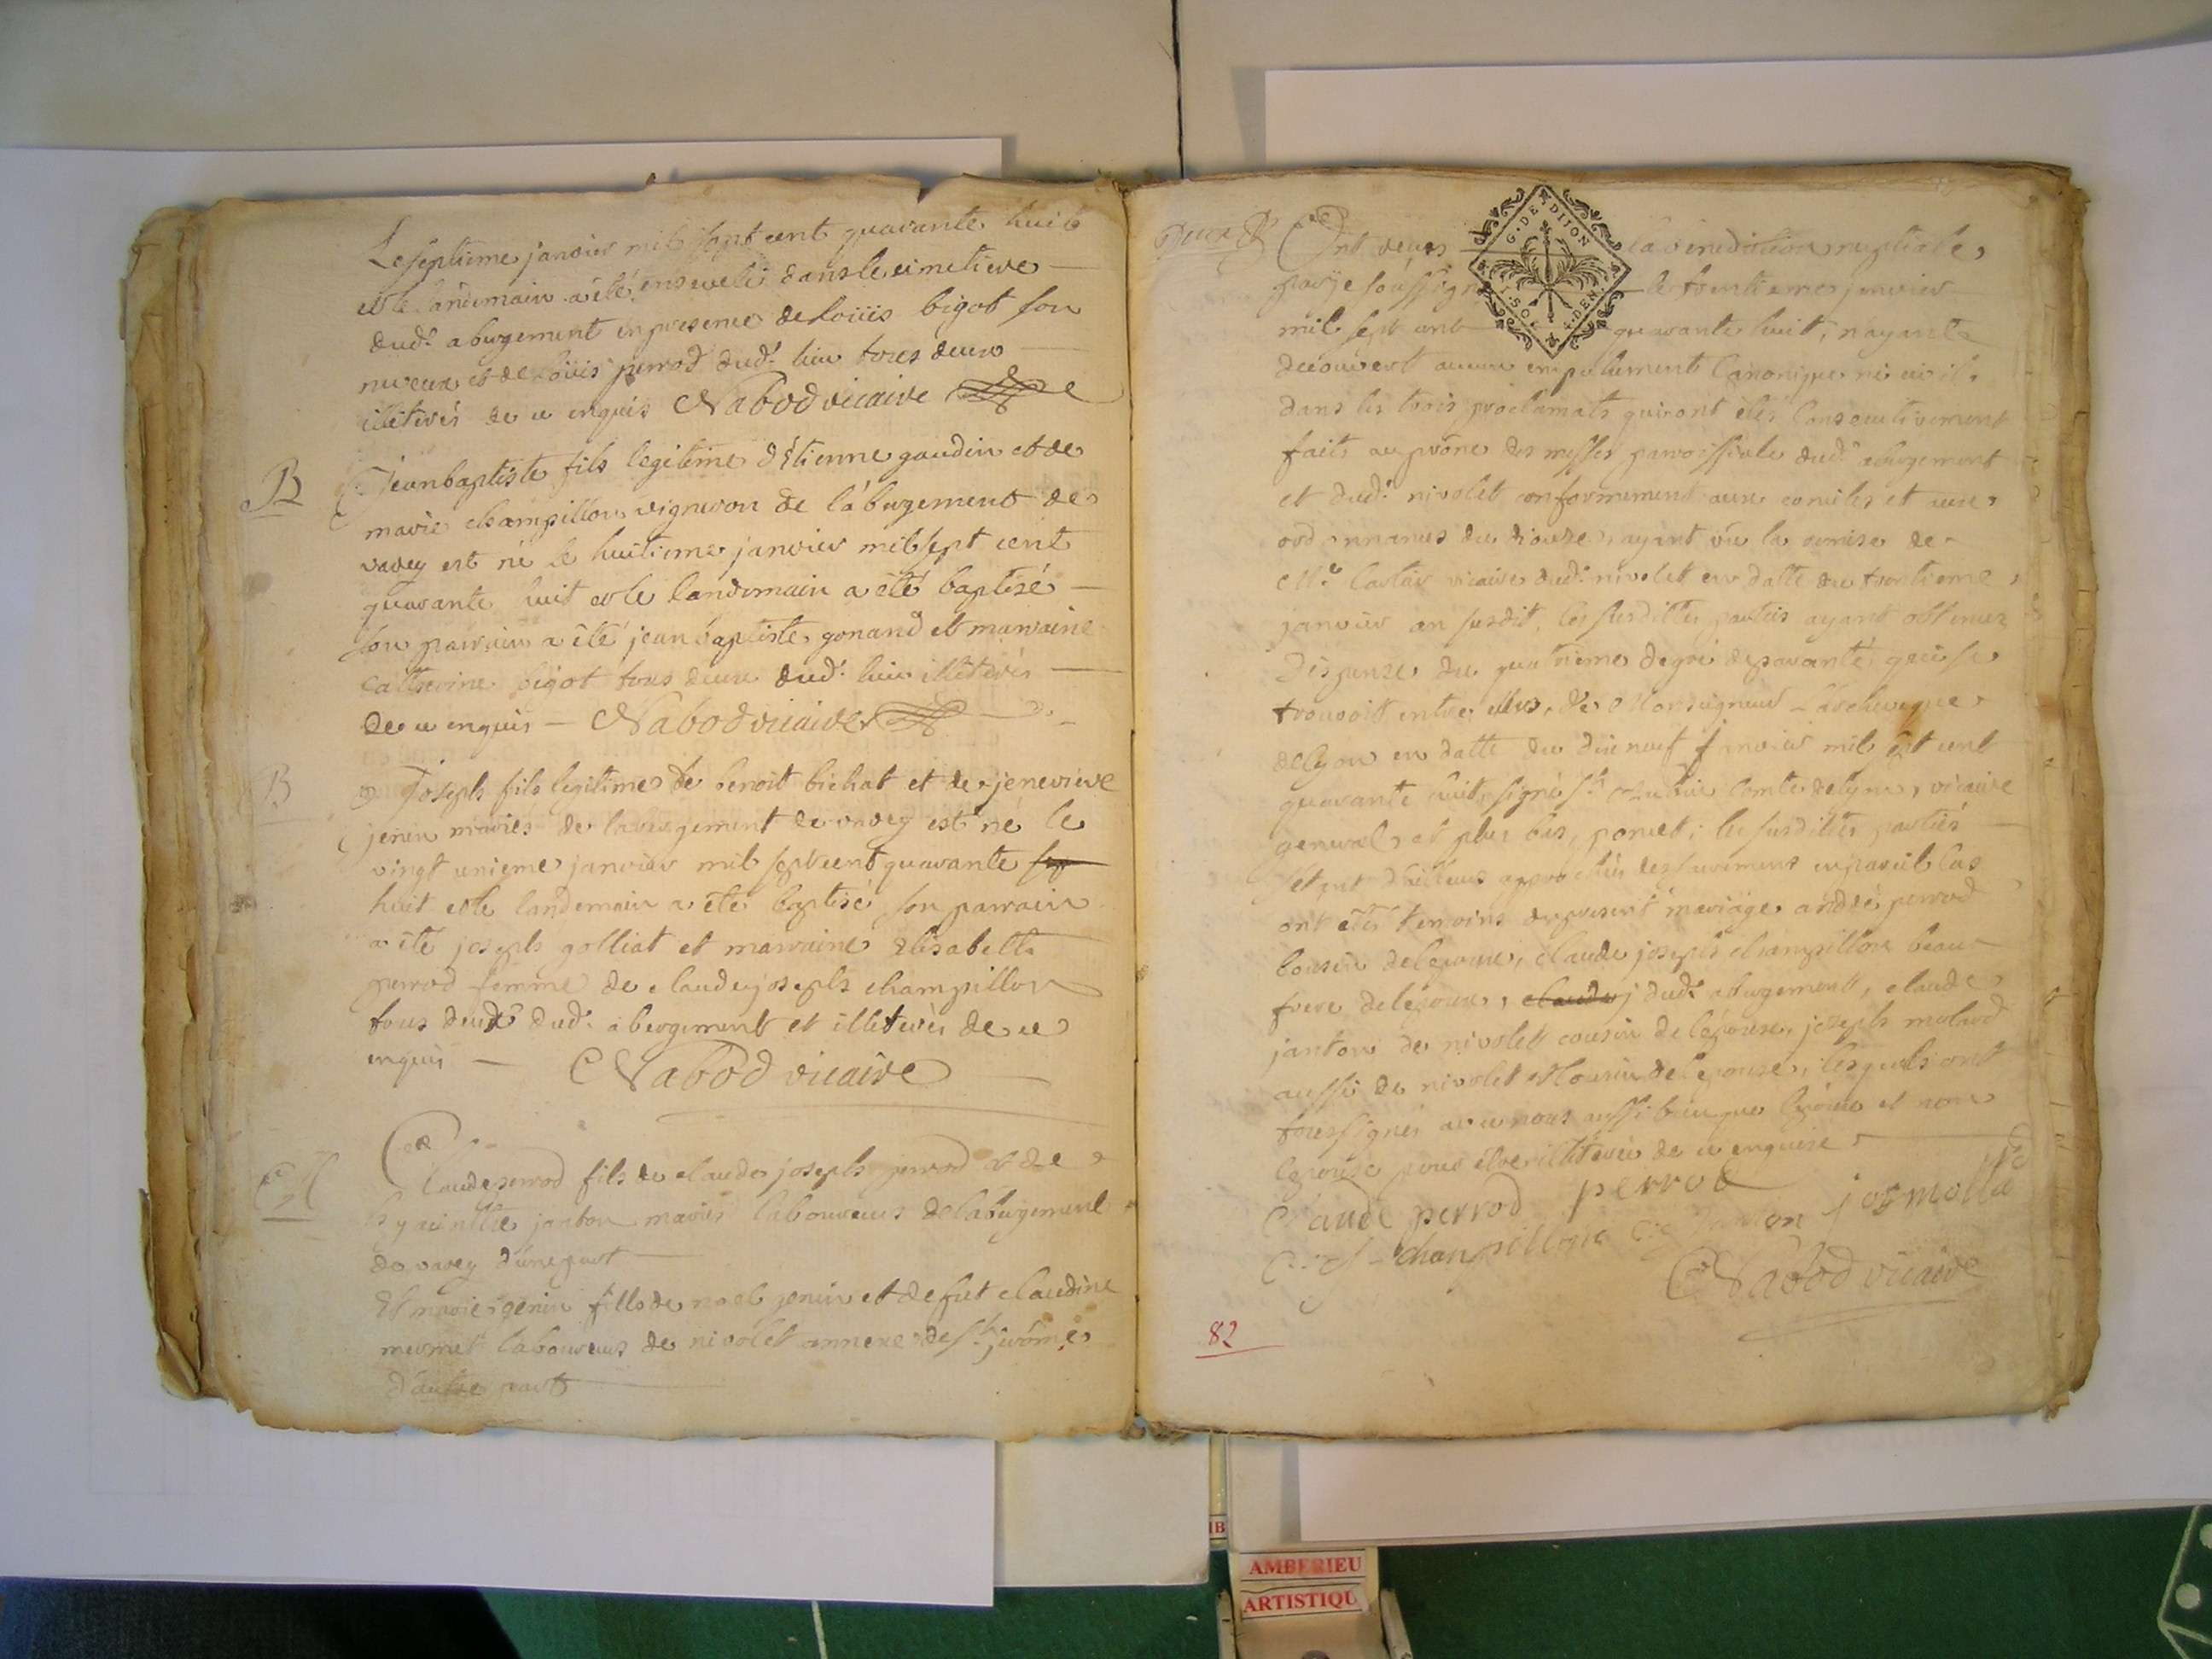 Le septieme janvier mil sept cent quarante huit
et le landemain a été enseveli dans le cimetiere
dud. abergement en presence de loüis bigot son
neveux et de loüis perrod dud. lieu tous deux
illiterés de ce enquis Nabod vicaire
B
Jean baptiste fils legitime d'étienne gaudin et de
marie champillon vigneron de l'abergement de
varey est né le huitieme janvier mil sept cent
quarante huit et le landemain a été baptisé
son parrain a été jean baptiste gonand et marraine
catherine bigot tous deux dud. lieu illiterés
de ce enquis Nabod vicaire
B
Joseph fils legitime de benoit bichat et de jenevieve
jenin mariés de labergement de varey est né le
vingt unieme janvier mil sept cent quarante sep
huit et le landemain a été baptisé son parrain
a été joseph golliat et marraine elisabeth
perrod femme de claude joseph champillon
tous deux dud. abergement et illiterés de ce
enquis Nabod vicaire
M
Claude perrod fils de claude joseph perrod et de
hyacinthe janton mariés laboureurs de labergement
de varey d'une part
Et marie genin fille de noel genin et de fut claudine
mermet laboureurs de nivolet annexe de st. jerôme
d'autre part
Ont reçus la benediction nuptiale
par je soussigné le trentieme janvier
mil sept cent quarante huit, n'ayant
decouvert aucun empechement canonique ni civil
dans les trois proclamats qui ont étés consecutivement
faits au prône des messes paroissiale dud. abergement
et dud. nivolet conformement aux conciles et aux
ordonnances du dioceze, ayant vû la remise de
Mr. vicaire dud. nivolet en datte du trentieme
janvier an susdit, les susdittes parties ayant obtenus
dispense du quatrieme degré de parenté qui se
trouvoit entre elles, de Monseigneur L'archeveque
de lyon en datte du dix neuf janvier mil sept cent
quarante huit, signé comte de lyon, vicaire
general, et plus bas, les susdittes parties
etant d'ailleurs approchées des sacremens en pareil cas
ont étés temoins du present mariage andré perrod
cousin de lepoux, claude joseph champillon beau
frere de lépoux, claude j dud. abergement, claude
janton de nivolet cousin de lépouse, joseph molard
aussi de nivolet cousin de lepouse, lesquels ont
tous signés avec nous aussi bien que lépoux et non
lepouse pour etre illiterée de ce enquise
Claude perrod perrod
C: J champillon C: Janton jos molla
Nabod vicaire
82
G. DE DIJON
4. DEN.
AMBERIEU
ARTISTIQU